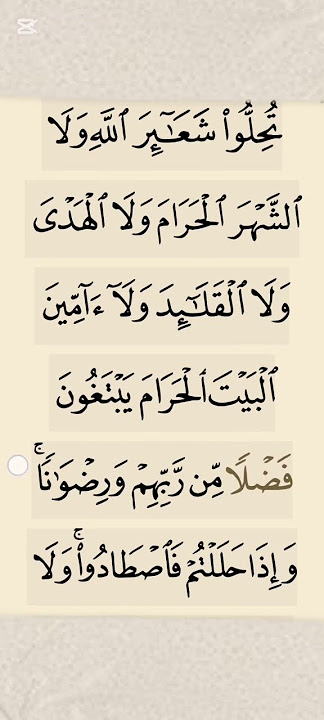 تُحِلُّوا۟ شَعَـٰٓئِرَ ٱللَّهِ وَلَا
ٱلشَّهْرَ ٱلْحَرَامَ وَلَا ٱلْهَدْىَ
وَلَا ٱلْقَلَـٰٓئِدَ وَلَآ ءَآمِّينَ
ٱلْبَيْتَ ٱلْحَرَامَ يَبْتَغُونَ
فَضْلًا مِّن رَّبِّهِمْ وَرِضْوَٰنًا ۚ
وَإِذَا حَلَلْتُمْ فَٱصْطَادُوا۟ ۚ وَلَا